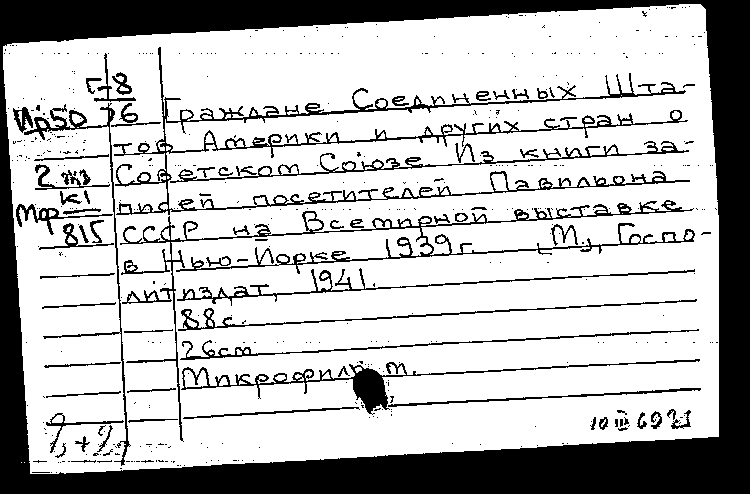 Г-8
Ир50 76 Граждане Соединенных Шта-
тов Америки и других стран о
2 экз Советском Союзе. Из книги за-
Мф К1 писей посетителей Павильона
815 СССР на Всемирной выставке
в Нью-Йорке 1939г. [М.], Госпо-
литиздат, 1941.
88с.
26cm
Микрофильм.
10 III 69